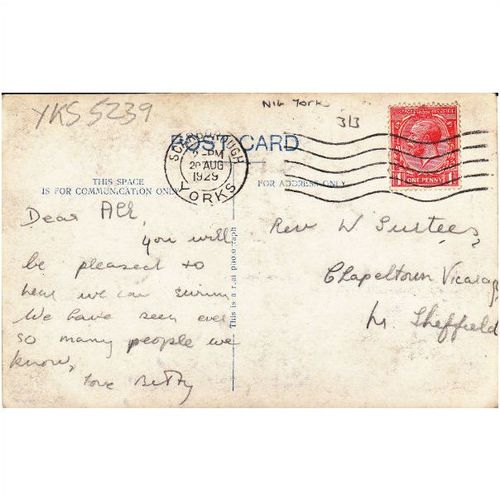 YKS 5239
Nik York
313
POST CARD
SCARBOROUGH
PM
20 AUG
1929
YORKS
ONE PENNY
THIS SPACE
IS FOR COMMUNICATION ONLY
FOR ADDRESS ONLY
This is a real photograph
Dear All,
you will
be pleased to
hear we can
We have seen ever
so many people we
know,
Love Betty
Rev W
Chapeltown Vicarag
Nr Sheffield